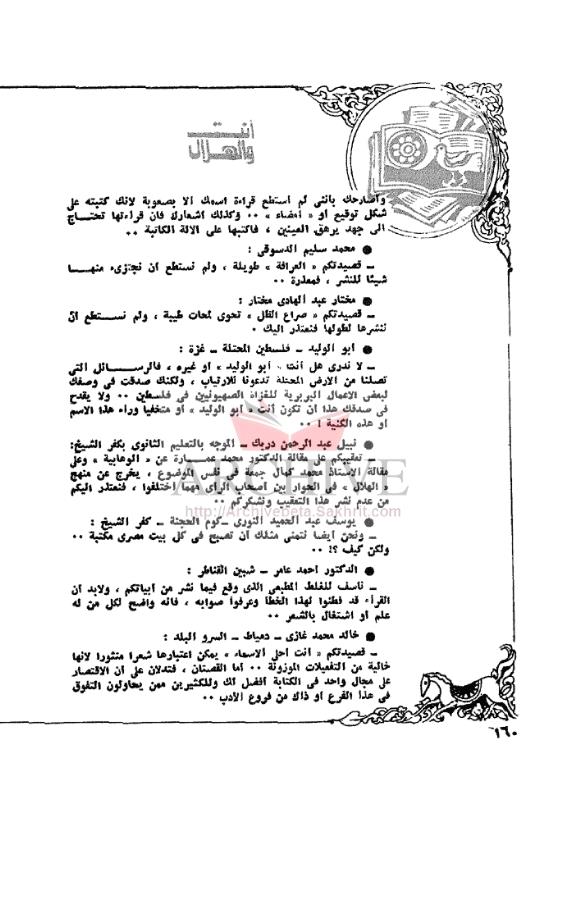 أنت
والهلال
وأصارحك بأننى لم أستطع قراءة اسمك الا بصعوبة لانك كتبته على
شكل توقيع أو « امضاء » ٠٠ وكذلك اشعارك فان قراءتها تحتـــاج
الى جهد يرهق العينين ، فاكتبها على الآلة الكاتبة ٠٠
● محمد سليم الدسوقى :
ـ قصيدتكم « العرافة » طويلة ، ولم نستطع أن نجتزىء منهـــا
شيئا للنشر ، فمعذرة ٠٠
● مختار عبد الهادى مختار :
ـ قصيدتكم « صراع الظل » تحوى لمحات طيبة ، ولم نســـتطع أن
ننشرها لطولها فنعتذر اليك ٠
● أبو الوليد ـ فلسطين المحتلة ـ غزة :
ـ لا ندرى هل أنت « أبو الوليد » أو غيره ، فالرســـائل التى
تصلنا من الارض المحتلة تدعونا للارتياب ، ولكنك صدقت فى وصفك
لبعض الاعمال البربرية للغزاة الصهيونيين فى فلسطين ٠٠ ولا يقدح
فى صدقك هذا أن تكون أنت « أبو الوليد » أو متخفيا وراء هذا الاسم
أو هذه الكنية ! ٠٠
● نبيل عبد الرحمن دربك ـ الموجه بالتعليم الثانوى بكفر الشيخ:
ـ تعقيبكم على مقالة الدكتور محمد عمـــارة عن « الوهابية » وعلى
مقالة الاستاذ محمد كمال جمعة فى نفس الموضوع ، يخرج عن منهج
« الهلال » فى الحوار بين أصحاب الرأى مهما اختلفوا ، فنعتذر اليكم
من عدم نشر هذا التعقيب ونشكركم ٠٠
ARCHIVE
http://Archivebeta.Sakhrit.com
● يوسف عبد الحميد النورى ـ كوم الحجنة ـ كفر الشيخ :
ـ ونحن أيضا نتمنى مثلك أن تصبح فى كل بيت مصرى مكتبة ٠٠
ولكن كيف ؟! ٠٠
● الدكتور أحمد عامر ـ شبين القناطر :
ـ نأسف للغلط المطبعى الذى وقع فيما نشر من أبياتكم ، ولابد أن
القراء قد فطنوا لهذا الخطأ وعرفوا صوابه ، فانه واضح لكل من له
علم أو اشتغال بالشعر ٠٠
● خالد محمد غازى ـ دمياط ـ السرو البلد :
ـ قصيدتكم « أنت أحلى الاسماء » يمكن اعتبارها شعرا منثورا لانها
خالية من التفعيلات الموزونة ٠٠ أما القصتان ، فتدلان على أن الاقتصار
على مجال واحد فى الكتابة أفضل لك وللكثيرين ممن يحاولون التفوق
فى هذا الفرع أو ذاك من فروع الأدب ٠٠
١٦٠